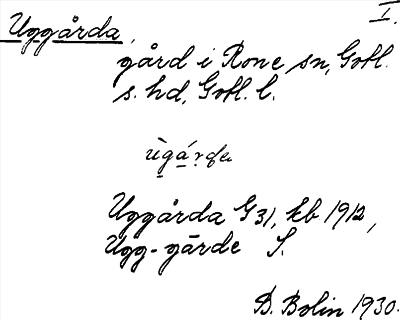 I.
Uggårda,
gård i Rone sn, Gotl.
s. hd, Gotl. l.
ùgárda
Uggårda G 31, kb 1912,
Ugg-gärde S.
B. Bolin 1930.